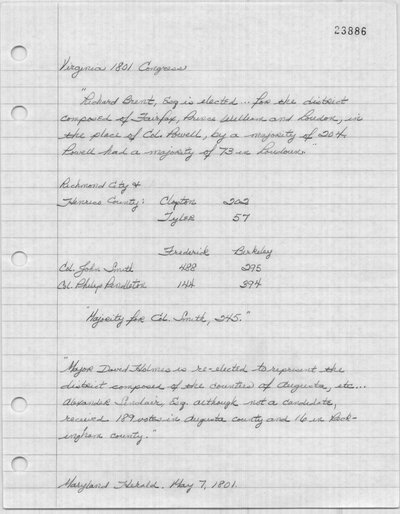 23886
Virginia 1801 Congress
"Richard Brent, Esq is elected... for the district
composed of Fairfax, Prince William and Loudon, in
the place of Col. Powell, by a majority of 204.
Powell had a majority of 73 in Loudoun."
Richmond City &
Henrico County: Clopton 202
Tyler 57
Frederick Berkeley
Col. John Smith 488 295
Col. Philip Pendleton 144 394
"Majority for Col. Smith, 245."
"Major David Holmes is re-elected to represent the
district composed of the counties of Augusta, etc...
Alexander Sinclair, Esq. although not a candidate,
received 189 votes in Augusta county and 16 in Rock-
ingham county."
Maryland Herald. May 7, 1801.